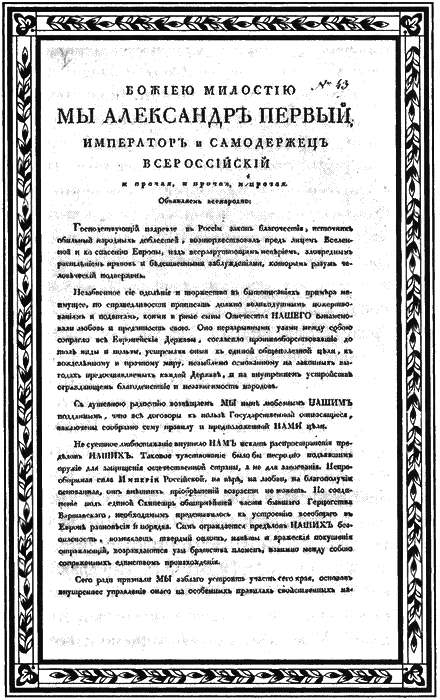 № 43
БОЖІЕЮ МИЛОСТІЮ
МЫ АЛЕКСАНДРЪ ПЕРВЫЙ,
ИМПЕРАТОРЪ и САМОДЕРЖЕЦЪ
ВСЕРОССІЙСКІЙ
и прочая, и прочая, и прочая.
Объявляемъ всенародно:
Господствующій издревле въ Россіи законъ благочестія, источникъ
обильный народныхъ доблестей, возторжествовалъ предъ лицемъ Вселен-
ной и ко спасенію Европы, надъ всеразрушающимъ невѣріемъ, зловреднымъ
растлѣніемъ нравовъ и бѣдственными заблужденіями, которымъ разумъ че-
ловѣческій подверженъ.
Незабвенное сіе одолѣніе и торжество въ бытописаніяхъ примѣра не-
имущее, по справедливости приписать должно великодушнымъ пожертво-
ваніямъ и подвигамъ, коими вѣрные сыны Отечества НАШЕГО ознамено-
вали любовь и преданность свою. Оно неразрывными узами между собою
сопрягло всѣ Европейскія Державы, согласило противоборствованіе до
толѣ виды и пользы, устремляя оныя къ единой общеполезной цѣли, къ
вожделѣнному и прочному миру, незыблемо основанному на законныхъ вы-
годахъ предоставляемыхъ каждой Державѣ, и на внутреннемъ устройствѣ
ограждающемъ благоденствіе и независимость народовъ.
Съ душевною радостію возвѣщаемъ МЫ нынѣ любезнымъ НАШИМЪ
подданнымъ, что всѣ договоры къ пользѣ Государственной относящіеся,
заключены сообразно сему правилу и предположенной НАМИ цѣли.
Не суетное любостяжаніе внушило НАМЪ искать распространенія пре-
дѣловъ НАШИХЪ. Таковое чувствованіе было бы несродно подъявшимъ
оружіе для защищенія отечественной страны, а не для завоеванія. Непрео-
боримая сила ИМПЕРІИ Россійской, на вѣрѣ, на любви, на благополучіи
основанная, отъ внѣшнихъ пріобрѣтеній возрасти не можетъ. Но соедине-
ніе подъ единой Скипетръ обширнѣйшей части бывшаго Герцогства
Варшавскаго, необходимымъ представлялось къ устроенію всеобщаго въ
Европѣ равновѣсія и порядка. Симъ ограждается предѣловъ НАШИХЪ без-
опасность, возникаетъ твердый оплотъ, навѣты и вражескія покушенія
отражающій, возраждаются узы братства племенъ, взаимно между собою
сопряженныхъ единствомъ происхожденія.
Сего ради признали МЫ за благо устроить участь сего края, основавъ
внутреннее управленіе онаго на особенныхъ правилахъ свойственныхъ на-